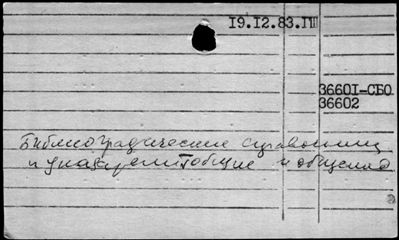 19.12.83.ПШ
36601-СБО
36602
Библиографические справочники
и указатели общие и общенац